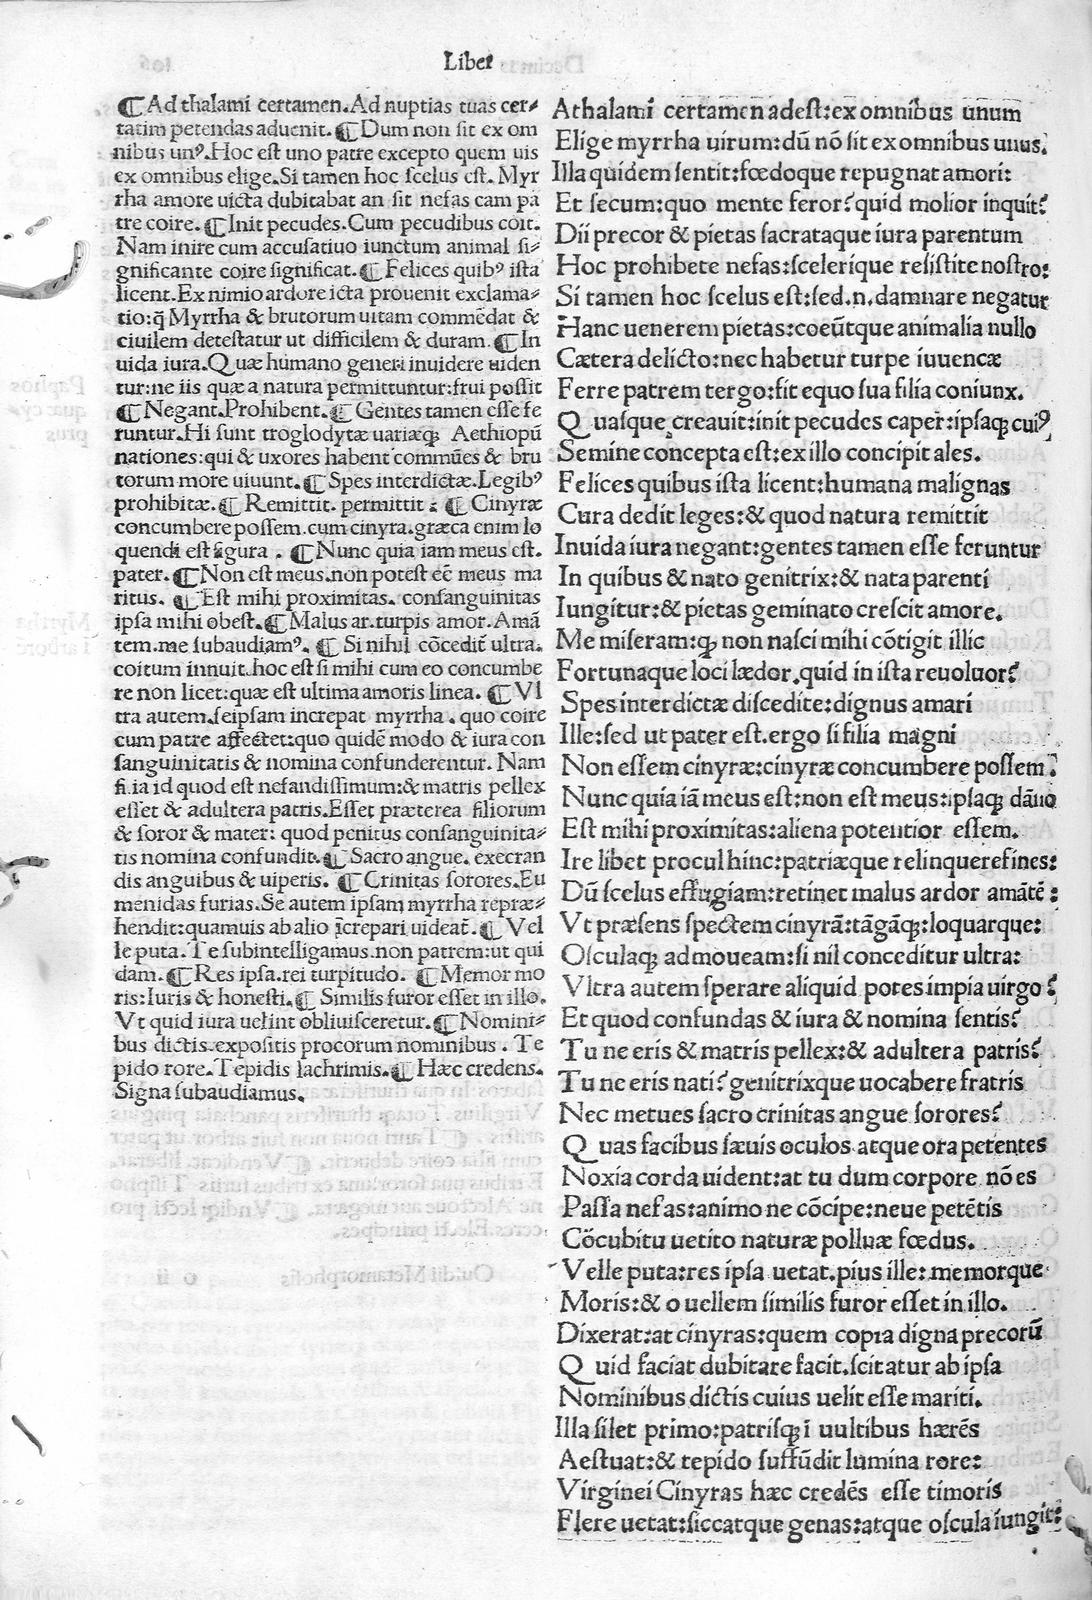 Liber
¶ Ad thalami certamen. Ad nuptias tuas cer⸗
tatim petendas aduenit. ¶ Dum non sit ex om
nibus unꝰ. Hoc est uno patre excepto quem uis
ex omnibus elige. Si tamen hoc scelus est. Myr
rha amore uicta dubitabat an sit nefas cam pa
tre coire. ¶ Init pecudes. Cum pecudibus coit.
Nam inire cum accusatiuo iunctum animal si⸗
gnificante coire significat. ¶ Felices quibꝰ ista
licent. Ex nimio ardore icta prouenit exclama⸗
tio: q̄ Myrrha & brutorum uitam commēdat &
ciuilem detestatur ut difficilem & duram. ¶ In
uida iura. Quæ humano generi inuidere uiden
tur: ne iis quæ a natura permittuntur: frui possit
¶ Negant. Prohibent. ¶ Gentes tamen esse fe
runtur. Hi sunt troglodytæ uariæqꝫ Aethiopū
nationes: qui & uxores habent commūes & bru
torum more uiuunt. ¶ Spes interdictæ. Legibꝰ
prohibitæ. ¶ Remittit. permittit : ¶ Cinyræ
concumbere possem. cum cinyra. græca enim lo
quendi est figura . ¶ Nunc quia iam meus est.
pater. ¶ Non est meus. non potest eē meus ma
ritus. ¶ Est mihi proximitas. consanguinitas
ipsa mihi obest. ¶ Malus ar. turpis amor. Amā
tem. me subaudiamꝰ. ¶ Si nihil cōcedit̄ ultra.
coitum innuit. hoc est si mihi cum eo concumbe
re non licet: quæ est ultima amoris linea. ¶ Vl
tra autem. seipsam increpat myrrha . quo coire
cum patre affectet: quo quidē modo & iura con
sanguinitatis & nomina confunderentur. Nam
filia id quod est nefandissimum: & matris pellex
esset & adultera patris. Esset præterea filiorum
& soror & mater: quod penitus consanguinita⸗
tis nomina confundit. ¶ Sacro angue. execran
dis anguibus & uiperis. ¶ Crinitas sorores. Eu
menidas furias. Se autem ipsam myrrha repræ⸗
hendit: quamuis ab alio īcrepari uideat̄. ¶ Vel
le puta. Te subintelligamus. non patrem: ut qui
dam. ¶ Res ipsa. rei turpitudo. ¶ Memor mo
ris: Iuris & honesti. ¶ Similis furor esset in illo.
Vt quid iura uelint obliuisceretur. ¶ Nomini⸗
bus dictis. expositis procorum nominibus . Te
pido rore. Tepidis lachrimis. ¶ Hæc credens.
Signa subaudiamus.
Athalami certamen adest: ex omnibus unum
Elige myrrha uirum: dū nō sit ex omnibus unus.
Illa quidem sentit: fœdoque repugnat amori:
Et secum: quo mente feror? quid molior inquit?
Dii precor & pietas sacrataque iura parentum
Hoc prohibete nefas: scelerique resistite nostro:
Si tamen hoc scelus est: sed.n.damnare negatur
Hanc uenerem pietas: coeūtque animalia nullo
Cætera delicto: nec habetur turpe iuuencæ
Ferre patrem tergo: fit equo sua filia coniunx.
Quasque creauit: init pecudes caper: ipsaqꝫ cuiꝰ
Semine concepta est: ex illo concipit ales.
Felices quibus ista licent: humana malignas
Cura dedit leges: & quod natura remittit
Inuida iura negant: gentes tamen esse feruntur
In quibus & nato genitrix: & nata parenti
Iungitur: & pietas geminato crescit amore.
Me miseram: qꝫ non nasci mihi cōtigit illic
Fortunaque loci lædor. quid in ista reuoluor?
Spes interdictæ discedite: dignus amari
Ille: sed ut pater est. ergo si filia magni
Non essem cinyræ: cinyræ concumbere possem:
Nunc quia iā meus est: non est meus: ipsaqꝫ dāno
Est mihi proximitas: aliena potentior essem.
Ire libet procul hinc: patriæque relinquere fines:
Dū scelus effugiam: retinet malus ardor amātē:
Vt præsens spectem cinyrā: tāgāqꝫ: loquarque:
Osculaqꝫ admoueam: si nil conceditur ultra:
Vltra autem sperare aliquid potes impia uirgo?
Et quod confundas & iura & nomina sentis?
Tu ne eris & matris pellex: & adultera patris?
Tu ne eris nati? genitrixque uocabere fratris
Nec metues sacro crinitas angue sorores?
Quas facibus sæuis oculos atque ora petentes
Noxia corda uident: at tu dum corpore nō es
Passa nefas: animo ne cōcipe: neue petētis
Cōcubitu uetito naturæ pollue fœdus.
Velle puta: res ipsa uetat. pius ille: memorque
Moris: & o uellem similis furor esset in illo.
Dixerat: at cinyras: quem copia digna precorū
Quid faciat dubitare facit. scitatur ab ipsa
Nominibus dictis cuius uelit esse mariti.
Illa silet primo: patrisqꝫ ī uultibus hærēs
Aestuat: & tepido suffūdit lumina rore:
Virginei Cinyras hæc credēs esse timoris
Flere uetat: siccatque genas: atque oscula iungit: